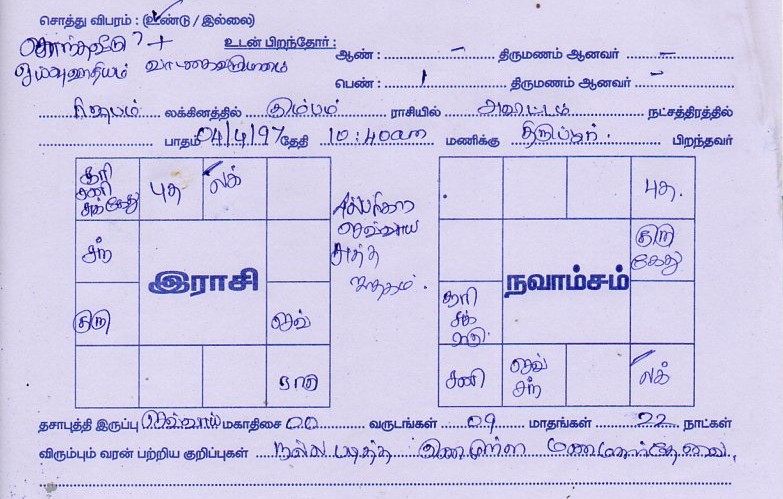 சொத்து விபரம் : (உண்டு / இல்லை)
சொந்தவீடு? +
உடன் பிறந்தோர் : ஆண் : – திருமணம் ஆனவர் –
வாடகைவருமானம்
பெண் : 1 திருமணம் ஆனவர் –
ரிஷபம் லக்கினத்தில் கும்பம் ராசியில் அவிட்டம் நட்சத்திரத்தில்
பாதம் 04/4/97 தேதி 10:40am மணிக்கு திருப்பூர் பிறந்தவர்
சூரி சனி சுக் கேது
புத
லக்
சந்
இராசி
குரு
செவ்
ராகு
பரிகார
செவ்வாய்
சுத்த
ஜாதகம்.
புத.
குரு கேது
நவாம்சம்
சூரி சுக் ராகு
சனி
செவ் சந்
லக்
தசாபுத்தி இருப்பு செவ்வாய் மகாதிசை 00 வருடங்கள் 09 மாதங்கள் 22 நாட்கள்
விரும்பும் வரன் பற்றிய குறிப்புகள் நல்ல படித்த குணமுள்ள மணமகன் தேவை.